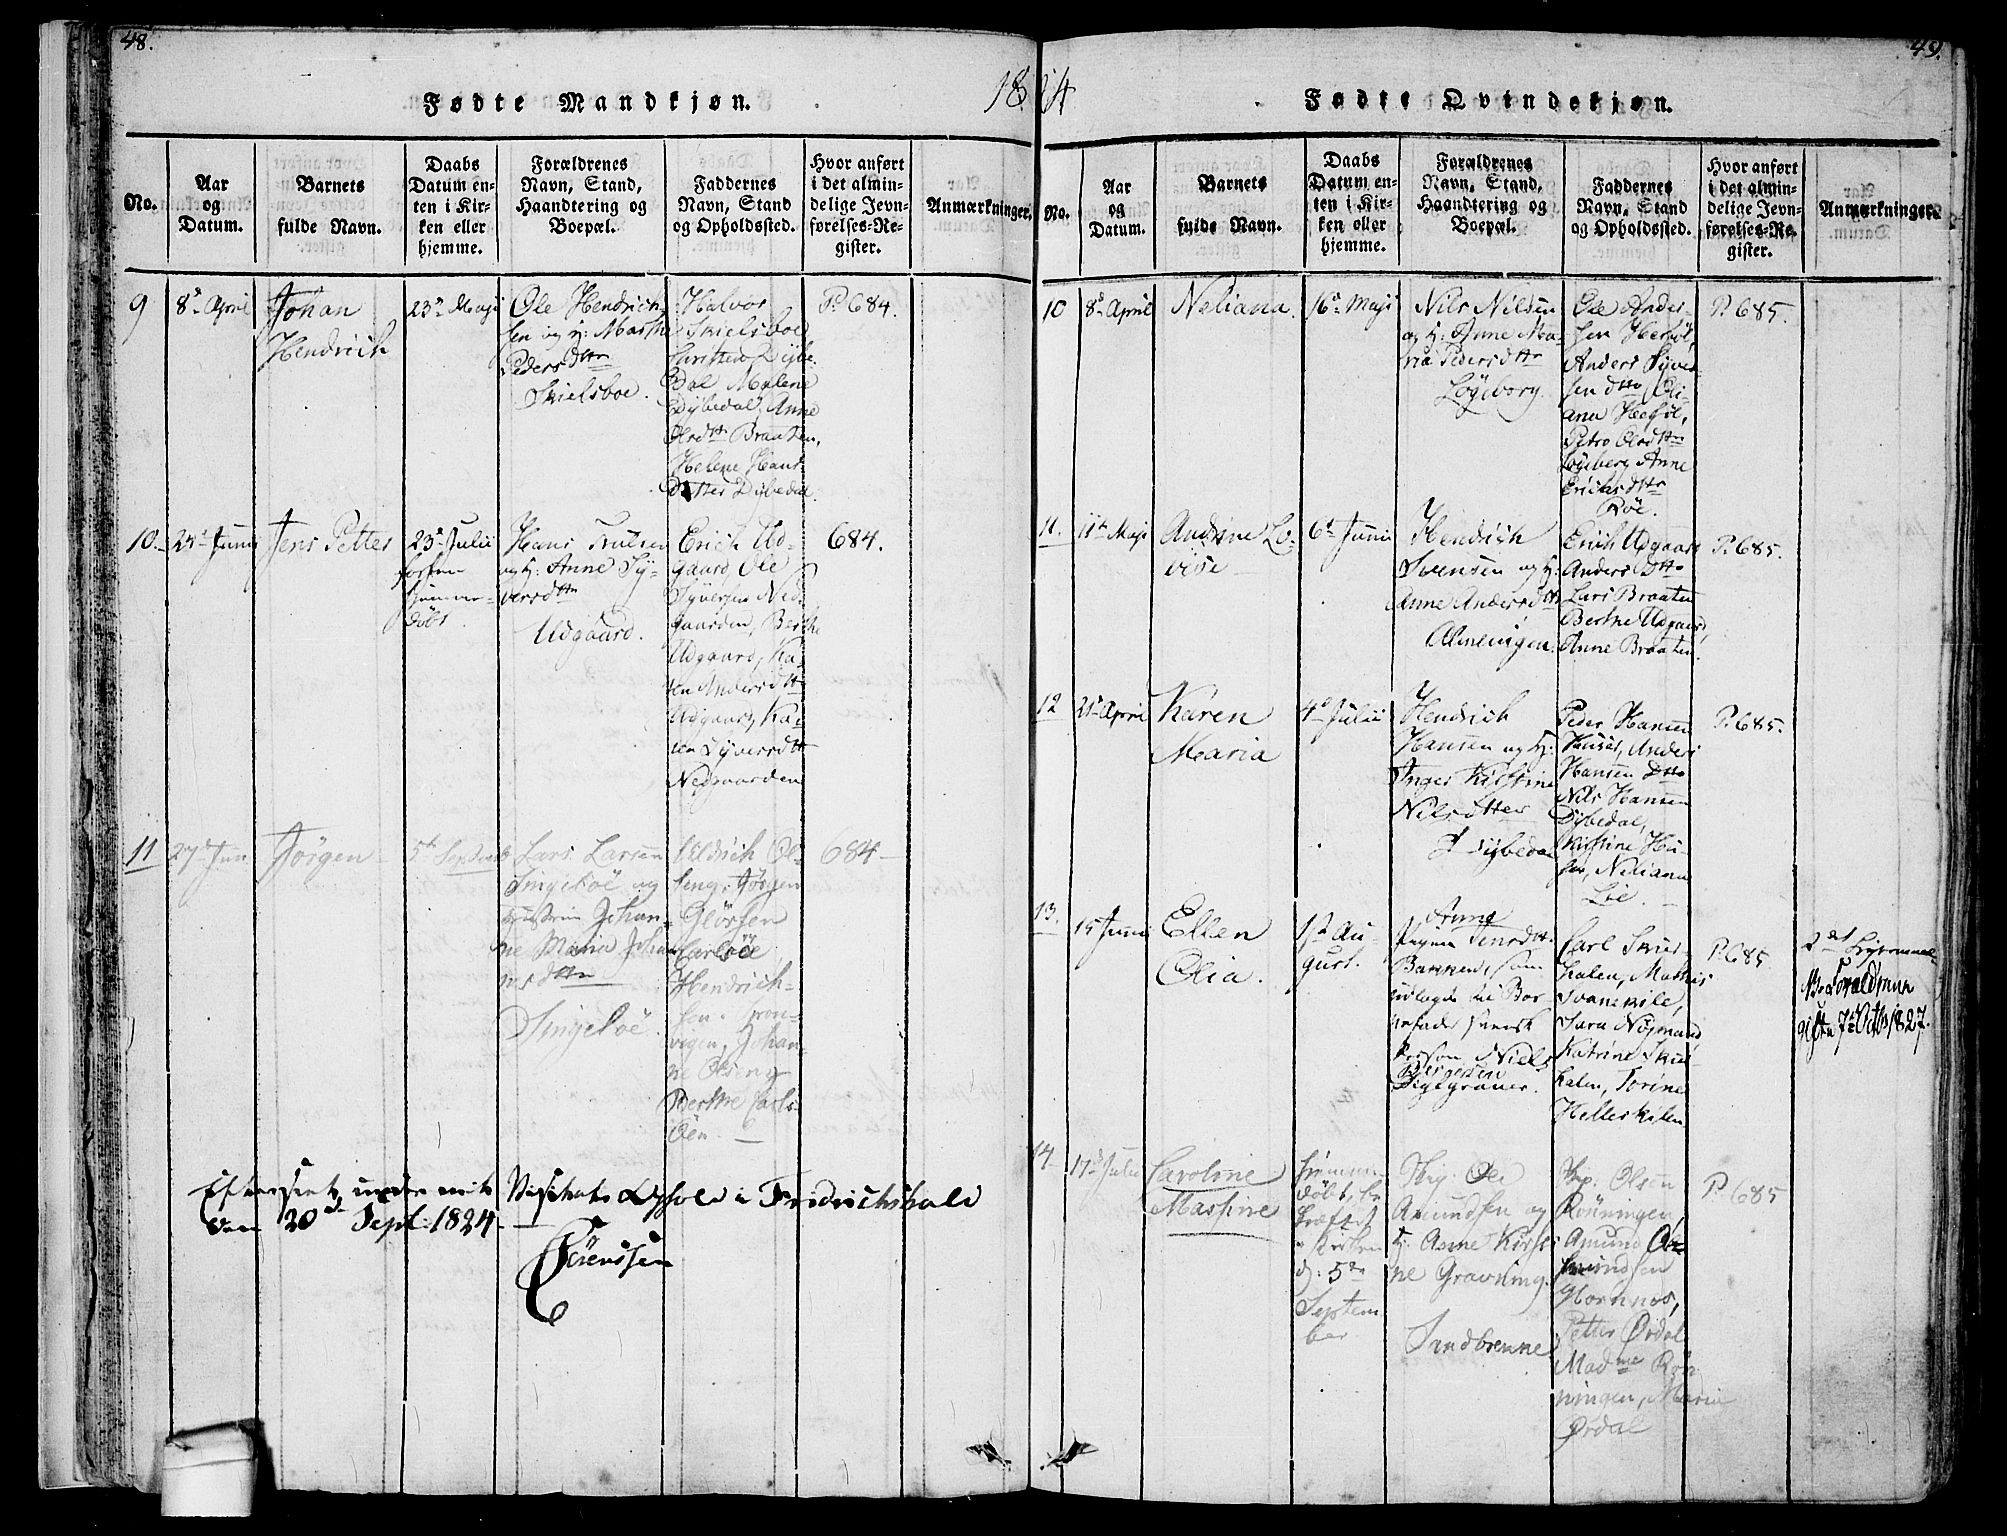 48.
1824
Fødte Mandkjøn.
No.
Aar og Datum.
Barnets fulde Navn.
Daabs Datum enten i Kirken eller hjemme.
Forældrenes Navn, Stand, Haandtering og Boepæl.
Faddernes Navn, Stand og Opholdssted.
Hvor anført i det almindelige Jevnførelses-Register.
Anmærkninger.
9
8d April
Johan
Hendrich
23d Maji
Ole Hendrich
sen og H: Marthe
Peders dtr
Skielsboe.
Halvor
Skielsboe
Christen Dÿbe
dal Malene
Dÿbedal, Anne
Olsdtr Braaten,
Helene Hans
datter Dÿbedal.
P. 684.
10.
24d Junii
Jens Petter
23d Julii
hjemme
døbt.
Hans Trulsen
og H: Anne Sÿ-
versdtr
Udgaard.
Erich Ud-
gaard, Ole
Sÿversen Ned-
gaarden, Berthe
Udgaard, Ka-
ren Andersdtr
Udgaard, Ka-
ren Sÿversdtr
Nedgaarden
684.
11
27d Jun
Jørgen
5te Septemb
Lars Larsen
Singeløe og
Hustrue Johan-
ne Maria Johan
nesdtr
Singeløe.
Uldrich Ol-
seng, Jørgen
Glörsen
Carlsöe,
Hendrich-
sen
vigen, Johan-
ne Olseng
Berthe Carls
öen.
684
Efterseet under mit Visitats Ophold i Fredrichshald
den 20d Sept: 1824.
Sörenssen
49.
Fødte Qvindekjøn.
No.
Aar og Datum.
Barnets fulde Navn.
Daabs Datum enten i Kirken eller hjemme.
Forældrenes Navn, Stand, Haandtering og Boepæl.
Faddernes Navn, Stand og Opholdssted.
Hvor anført i det almindelige Jevnførelses-Register.
Anmærkninger.
10
8d April
Neliana.
16d Maji
Nils Nilsen
og H: Anne Ma-
ria Pedersdtr
Løgeborg.
Ole Ander-
sen Herföl,
Anders Sÿver
sen dtto, Oli-
ana Herföl,
Petro Olsdtr
Løgeberg Anne
Erichsdtr
Röe.
P. 685.
11.
11te Maji
Andrine Lo-
vise
6d Junii
Hendrich
Svensen og H:
Anne Andersdtr
Almeningen.
Erich Udgaard
Anders Dtto
Lars Braaten
Berthe Udgaard,
Anne Braaten.
P. 685.
12
21d April
Karen
Maria
4d Julii
Hendrich
Hansen og H:
Inger Kirstine
Nilsdtter
Dÿbedal
Peder Hansen
Huser, Anders
Hansen Dtto
Nils Hansen
Dÿbedal,
Kirstine Hu-
ser, Neliana
Löe.
P. 685.
13.
15 Junii
Ellen
Olia.
1st Au-
gust.
Anne
Jensdtr.
Barnen, som
udlagde til Bar-
nefader svensk
Person Niels
Börgesen
Digegraver.
Carl Skud-
halen, Mathis
Svanekile,
Sara Nÿsmand
Katrine Skud
halen, Torine
Hellekilen
P. 685.
2det Leiermaal
NB Forældrene
gifte 7d Octb 1827.
14
17d Julii
Caroline
Massine
hjemme
døbt,
i Kirken
d: 5te
Septem
ber
Hr: Ole
Amundsen og
H: Anne Kirsti
ne Gravning.
Sandbrenne
Hr: Olsen
Rönningen,
Amund
mundsen
Hornnes,
Petter Ørdal
Madme Rön-
ningen, Maria
Ørdal
P. 685